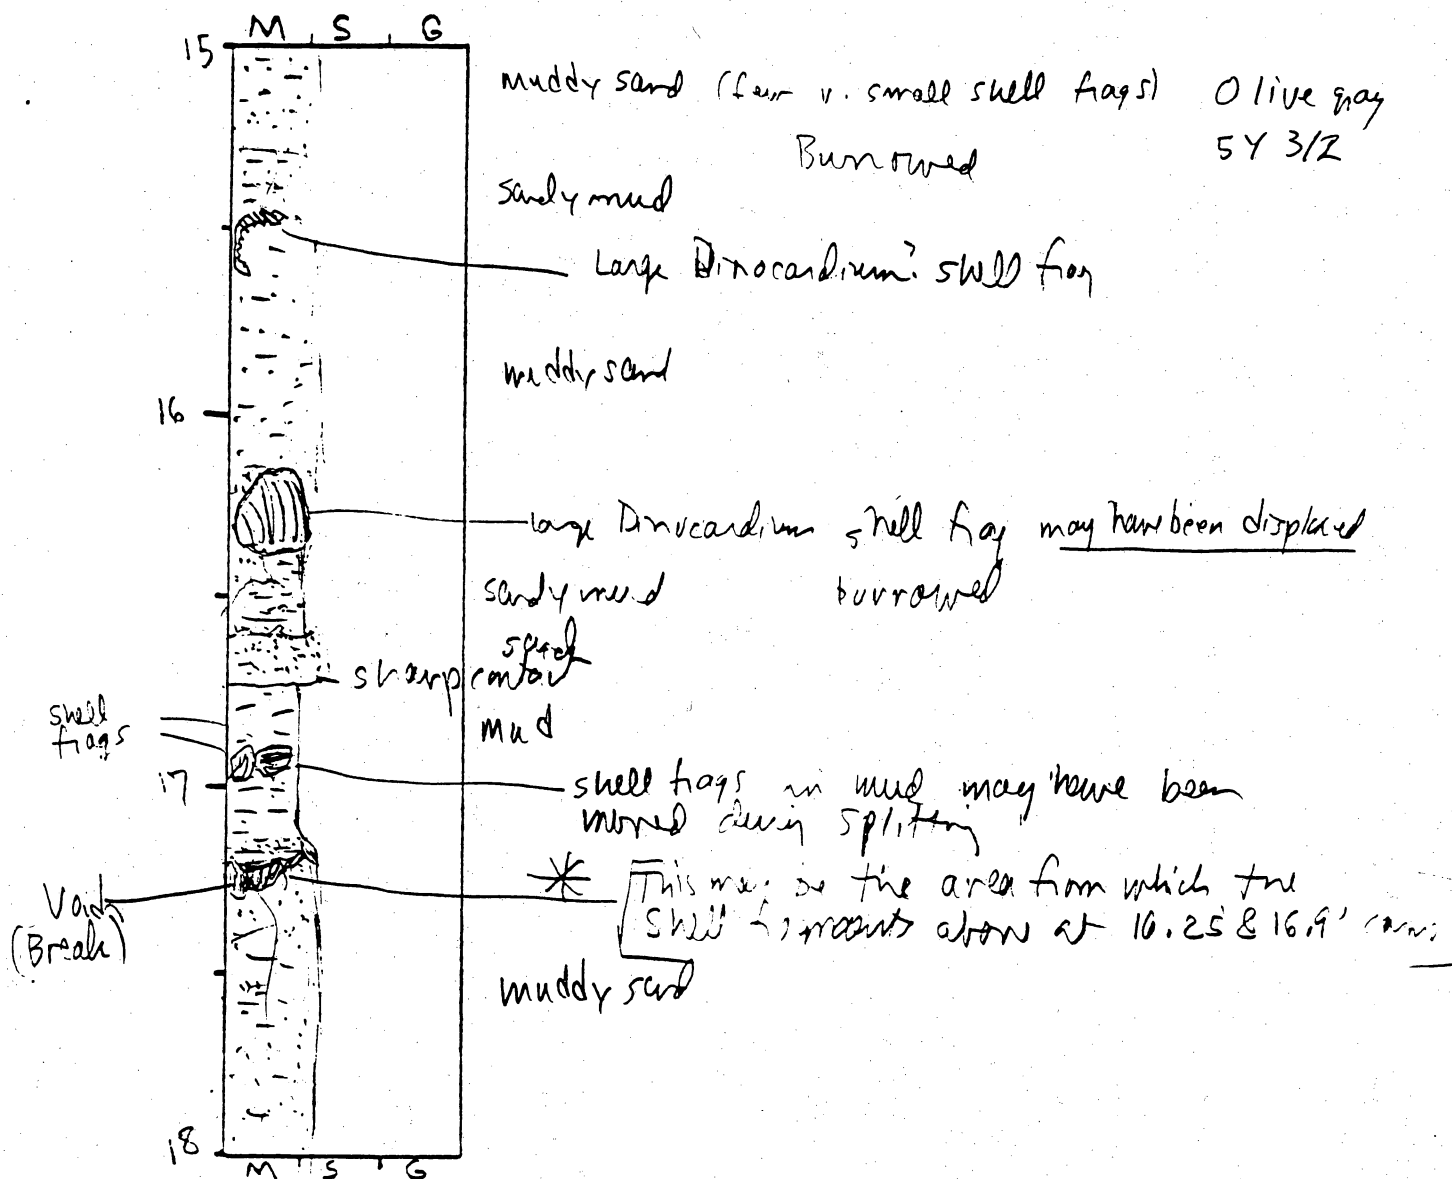 M S G
15
muddy sand (few v. small shell frags) Olive gray
Burrowed 5Y 3/2
sandy mud
Large Dinocardium? shell frag
muddy sand
16
Large Dinocardium shell frag may have been displaced
sandy mud burrowed
sand
sharp contact
shell
frags
mud
17
shell frags in mud may have been
moved during splitting
Void
(Break)
* This may be the area from which the
shell fragments above at 16.25 & 16.9'
muddy sand
18
M S G